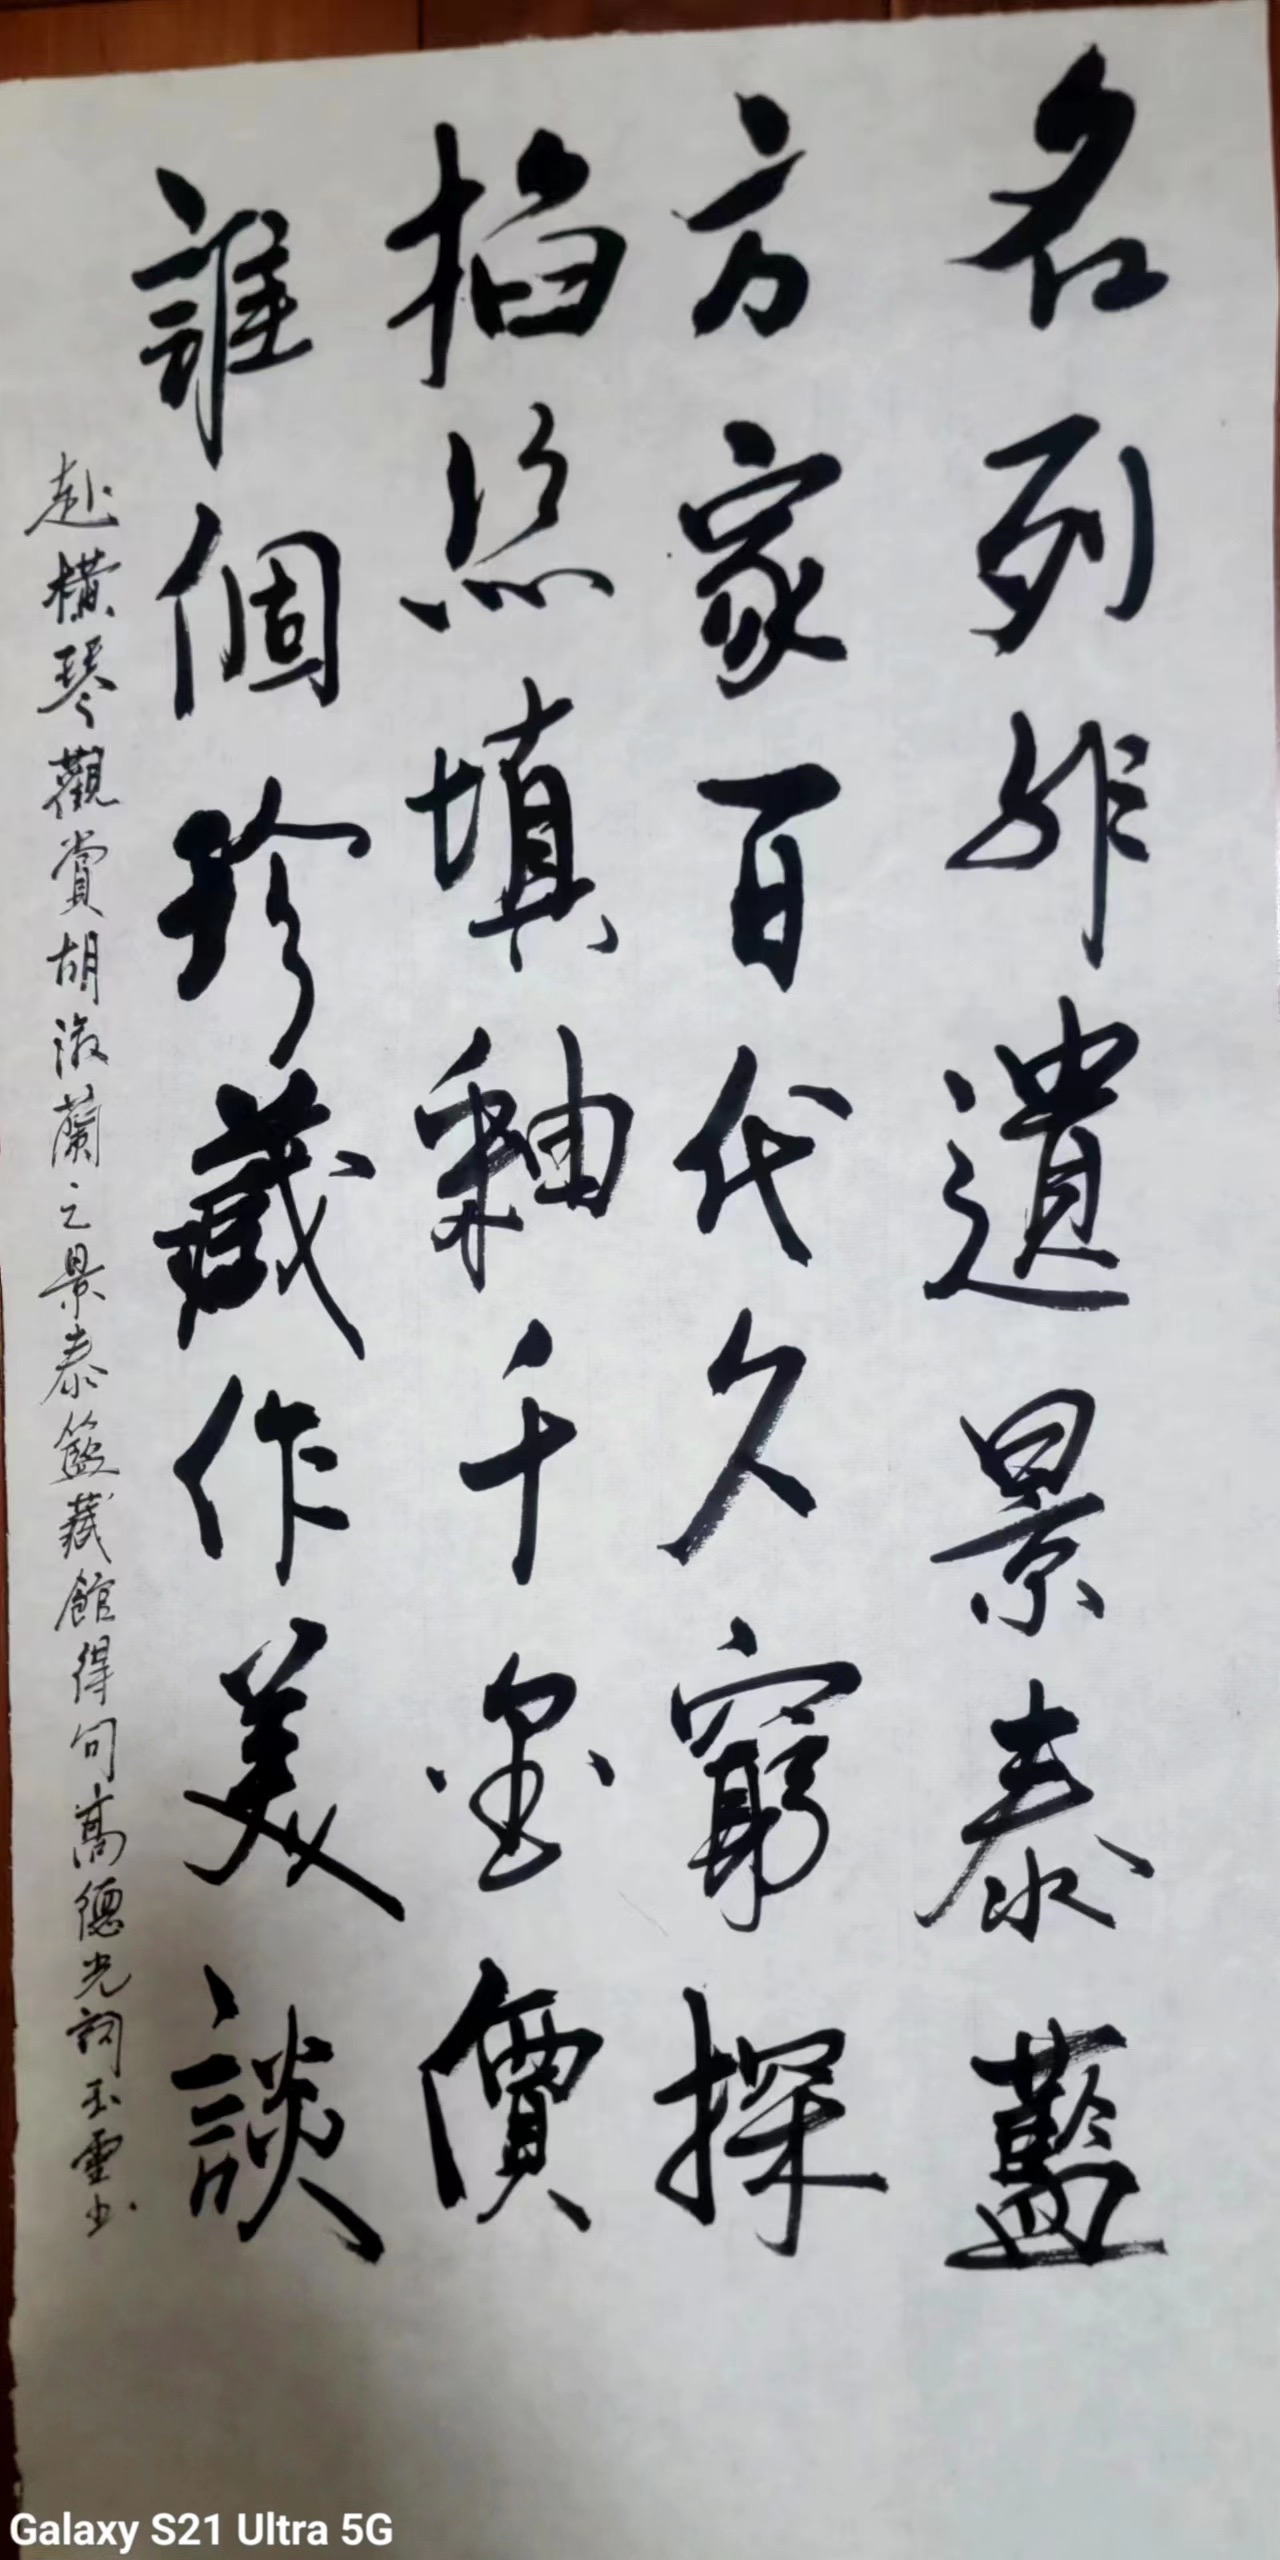 名列非遺景泰藍
方家百代久窮探
掐絲填釉千金價
誰個珍藏作美談
赴橫琴觀賞胡淑蘭之景泰籃藏館得句高德光詞玉雲书
Galaxy S21 Ultra 5G